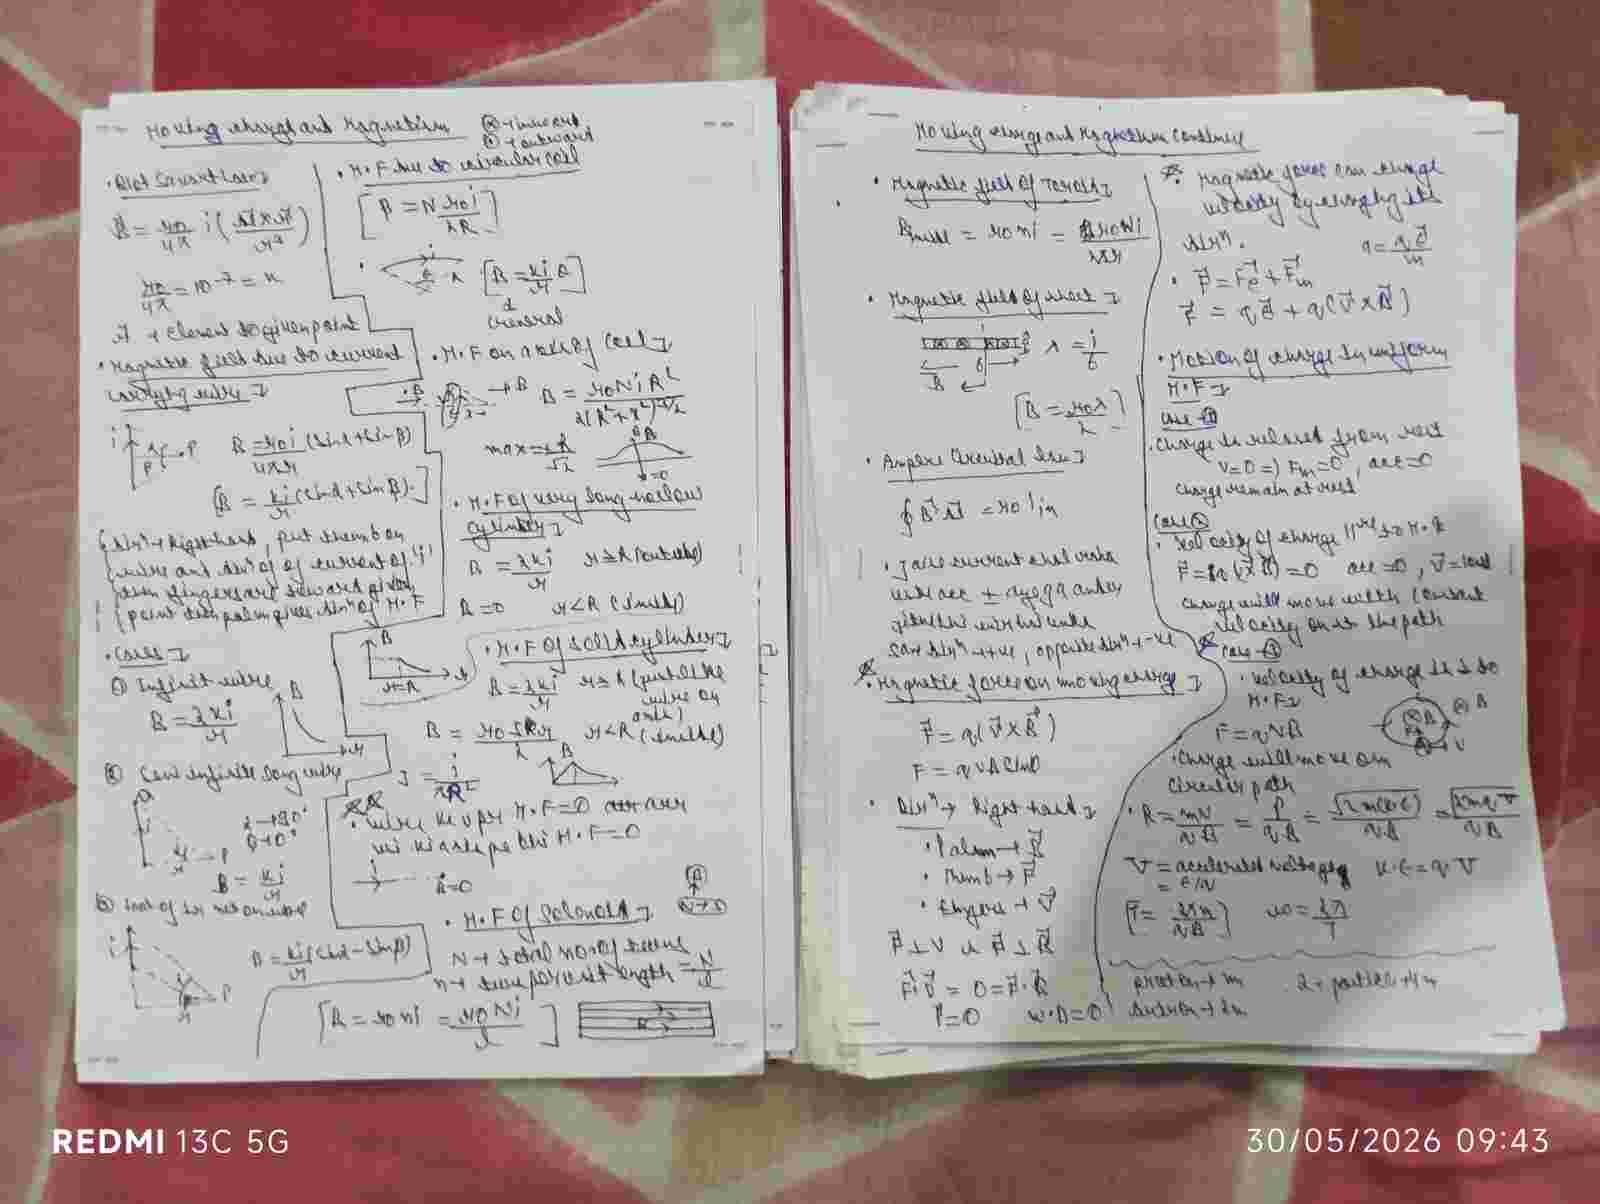 Moving charge and Magnetism
⊗ → inward
⊙ → outward
• Biot Savart Law →
B = μ0/4π i (dl × r / r³)
μ0/4π = 10⁻⁷ = K
r → element to given point
• Magnetic field due to current
carrying wire →
B = μ0 i/4πr (sinα + sinβ)
[B = Ki/r (sinα + sinβ)]
dirⁿ → Right hand, put thumb on
wire and dirⁿ of current 'i'
then fingers are toward given
point then palm gives dirⁿ of M.F
• Cases →
① Infinit wire
B = 2Ki/r
② Semi infinite long wire
α → 90°
β → 0°
B = Ki/r
B = Ki/r (sinα - sinβ)
• M.F due to circular coil
[B = N μ0 i/2R]
[B = Ki/r θ]
General
• M.F on axis of coil →
B = μ0 N i R²/2(R²+x²)^3/2
max = ±R/√2
• M.F of very long hollow
cylinder →
B = 2Ki/r r ≥ R (outside)
B = 0 r < R (inside)
• M.F of solid cylinder →
B = 2Ki/r r ≥ R (put like
wire on
axis)
B = μ0 J r/2 r < R (inside)
J = i/πR²
• wire ke upr M.F = 0
B = 0
• M.F of Solenoid →
N → total no. of turns
n → turn per unit length = N/l
[B = μ0 n i = μ0 N i/l]
Moving charge and Magnetism Continue
• Magnetic field of Toroid →
= μ0 n i = μ0 N i/2πr
• Magnetic field of sheet →
λ = i/b
[B = μ0 λ/2]
• Ampere Circuital Law →
∮ B dl = μ0 I in
same dirⁿ → +ve, opposite dirⁿ → -ve
• Magnetic force on moving charge →
F = q(V × B)
F = qVB sinθ
Dirⁿ → Right hand →
• Palm → B
• Thumb → F
• Fingers → V
F ⊥ V & F ⊥ B
F·V = 0 = F·B
P = 0 W.D = 0
• Magnetic force can change
velocity by changing its
dirⁿ.
• F = Fe + Fm
F = qE + q(V × B)
• Motion of charge in uniform
M.F →
Case - ①
• Charge is released from rest
V = 0 ⇒ Fm = 0, acc = 0
Charge remain at rest
Case ②
• Velocity of charge ॥ to M.F
F = q(V × B) = 0 acc = 0, V = const
Charge will move with constant
velocity on the path
Case - ③
• Velocity of charge is ⊥ to
M.F →
F = qVB
• Charge will move on
circular path
• R = mV/qB = P/qB = √2m(K.E)/qB = √2mqV/qB
V = accelerated voltage K.E = qV
[T = 2πm/qB] ω = 2π/T
proton → m α particle → 4m
REDMI 13C 5G
30/05/2026 09:43